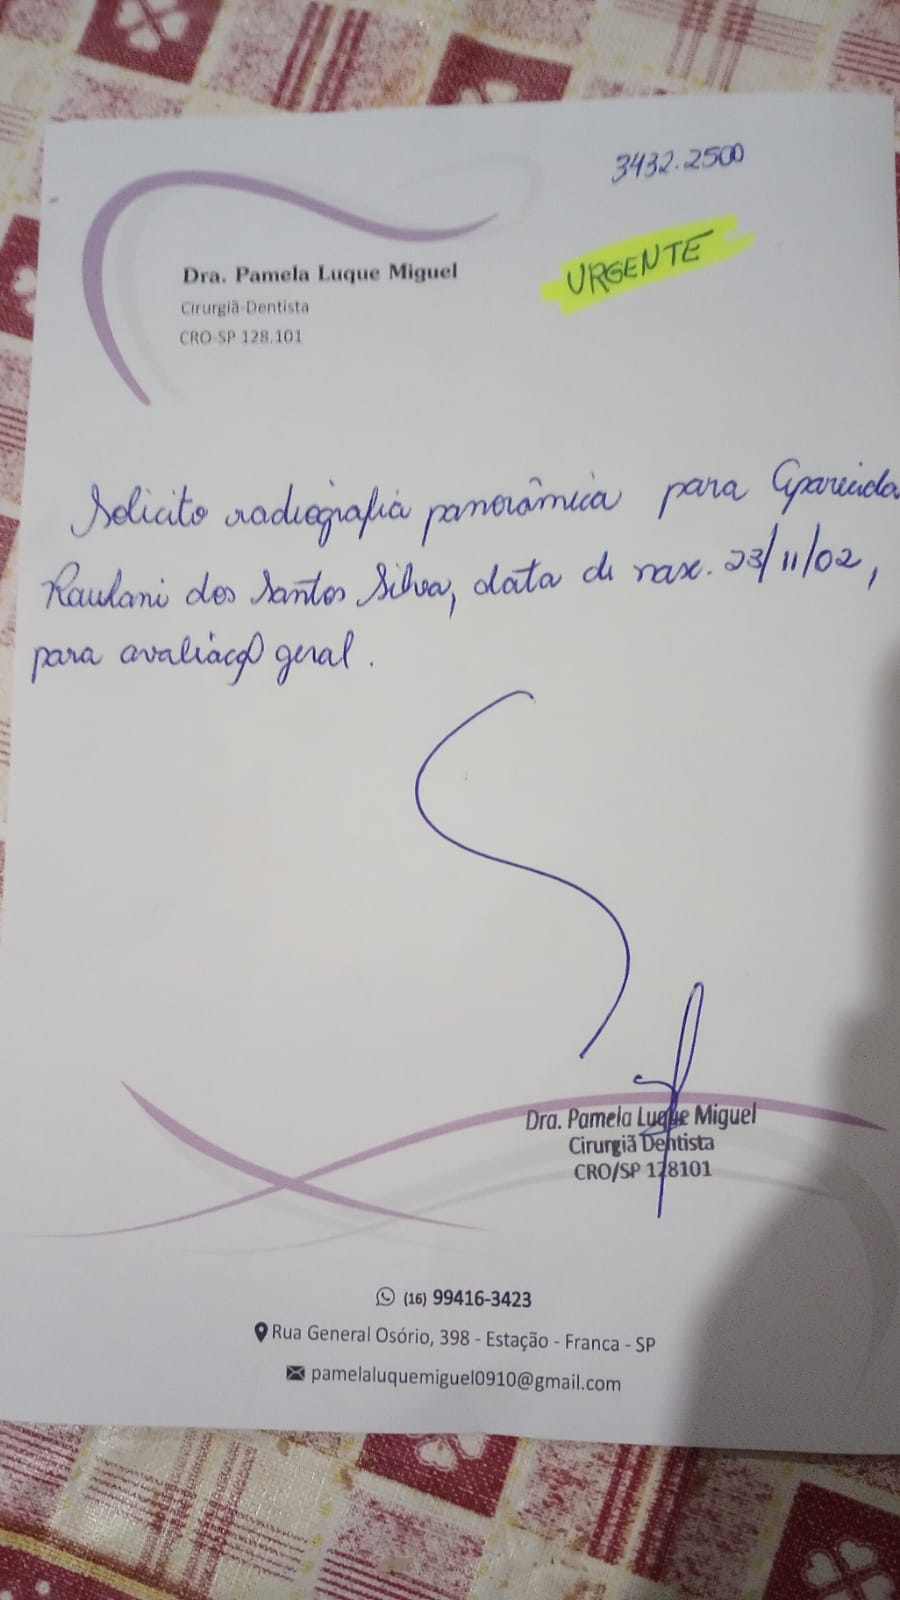 3432.2500
URGENTE
Dra. Pamela Luque Miguel
Cirurgiã-Dentista
CRO-SP 128.101
Solicito radiografia panorâmica para Aparecida
Raulani dos Santos Silva, data de nasc. 23/11/02,
para avaliação geral.
Dra. Pamela Luque Miguel
Cirurgiã Dentista
CRO/SP 128101
(16) 99416-3423
Rua General Osório, 398 - Estação - Franca - SP
pamelaluquemiguel0910@gmail.com